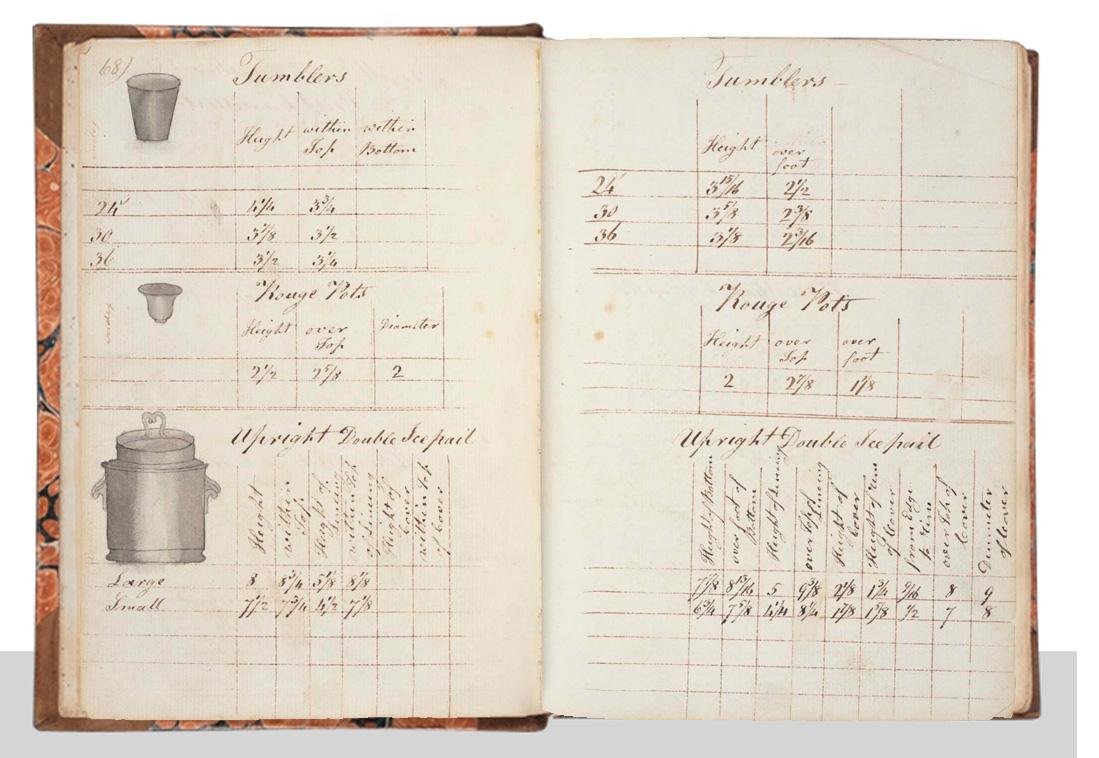 68)
Tumblers
Height within Top within Bottom
24 4 1/4 3 3/4
30 3 7/8 3 1/2
36 3 1/2 3 1/4
Rouge Pots
Height over Top Diameter
2 1/2 2 5/8 2
Upright Double Icepail
Height within Top Height of Linning within Top of Linning Height of Cover within Top of Cover
Large 8 8 3/4 5 1/8 8 1/8
Small 7 1/2 7 3/4 4 1/2 7 1/8
Tumblers
Height over foot
24 3 15/16 2 1/2
30 3 5/8 2 3/8
36 3 1/8 2 3/16
Rouge Pots
Height over Top over foot
2 2 7/8 1 1/8
Upright Double Icepail
Height of Bottom over foot of Bottom Height of Linning over Top of Linning Height of Cover Height of of Cover from Edge to over Top of Cover Diameter of Cover
7 7/8 8 13/16 5 9 3/8 2 1/8 1 3/4 9/16 8 9
6 3/4 7 5/8 4 1/4 8 1/4 1 7/8 1 5/8 1/2 7 8